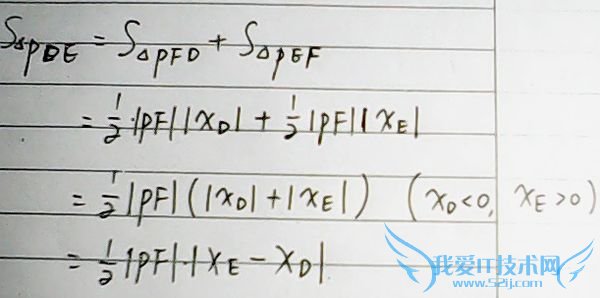 S△PDE = S△PFD + S△PEF
= 1/2·|PF||x_D| + 1/2|PF||x_E|
= 1/2|PF|(|x_D|+|x_E|) (x_D<0, x_E>0)
= 1/2|PF|·|x_E - x_D|
我爱IT技术网
www.52ij.com